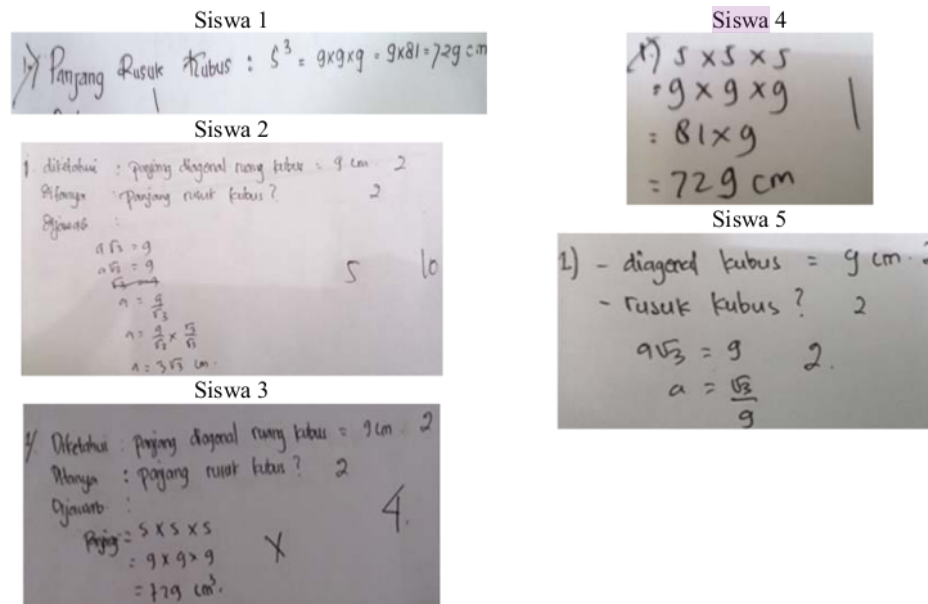 Siswa 1
1.) Panjang Rusuk Kubus : S³ = 9x9x9 = 9x81 = 729 cm
1
Siswa 2
1. diketahui : panjang diagonal ruang kubus = 9 cm. 2
Ditanya : Panjang rusuk kubus? 2
Dijawab :
a√3 = 9
a√3 = 9
a = 9/√3
a = 9/√3 x √3/√3
a = 3√3 cm.
5 10
Siswa 3
1/ Diketahui : panjang diagonal ruang kubus = 9 cm 2
Ditanya : panjang rusuk kubus? 2
Dijawab :
Panjang = s x s x s
= 9 x 9 x 9
= 729 cm³.
X 4.
Siswa 4
1.) s x s x s
= 9 x 9 x 9
= 81 x 9
= 729 cm
1
Siswa 5
1) - diagonal kubus = 9 cm. 2
- rusuk kubus? 2
a√3 = 9 2.
a = √3/9